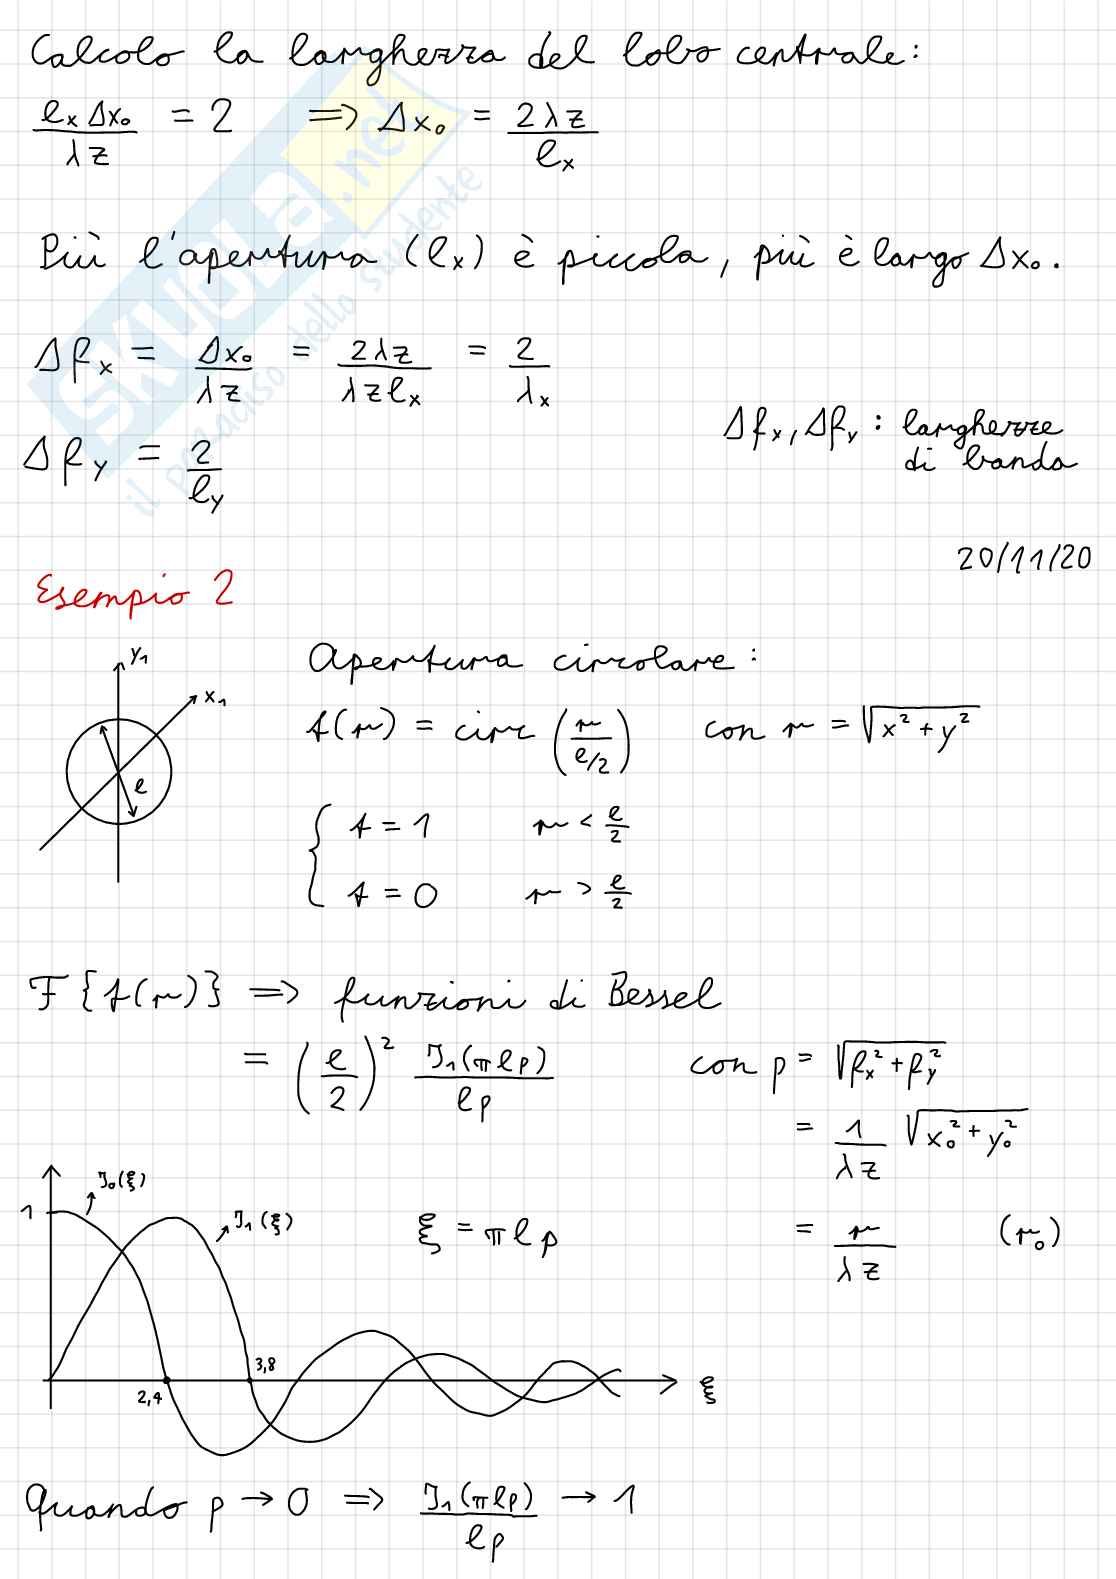 Calcolo la larghezza del lobo centrale:
ℓx Δx₀ / λz = 2 ⟹ Δx₀ = 2λz / ℓx
Più l'apertura (ℓx) è piccola, più è largo Δx₀.
Δfx = Δx₀ / λz = 2λz / λzℓx = 2 / λx
Δfy = 2 / ℓy
Δfx, Δfy : larghezze
di banda
20/11/20
Esempio 2
y₁
x₁
ℓ
Apertura circolare:
t(r) = circ (r / ℓ/2) con r = √(x² + y²)
{ t = 1 r < ℓ/2
t = 0 r > ℓ/2
F{t(r)} ⟹ funzioni di Bessel
= (ℓ/2)² J₁(πℓρ) / ℓρ con ρ = √(fx² + fy²)
= 1/λz √(x₀² + y₀²)
= r/λz (r₀)
1
J₀(ξ)
J₁(ξ)
ξ = πℓρ
2,4
3,8
ξ
Quando ρ → 0 ⟹ J₁(πℓρ) / ℓρ → 1
SKUOLA.net
il paradiso dello studente